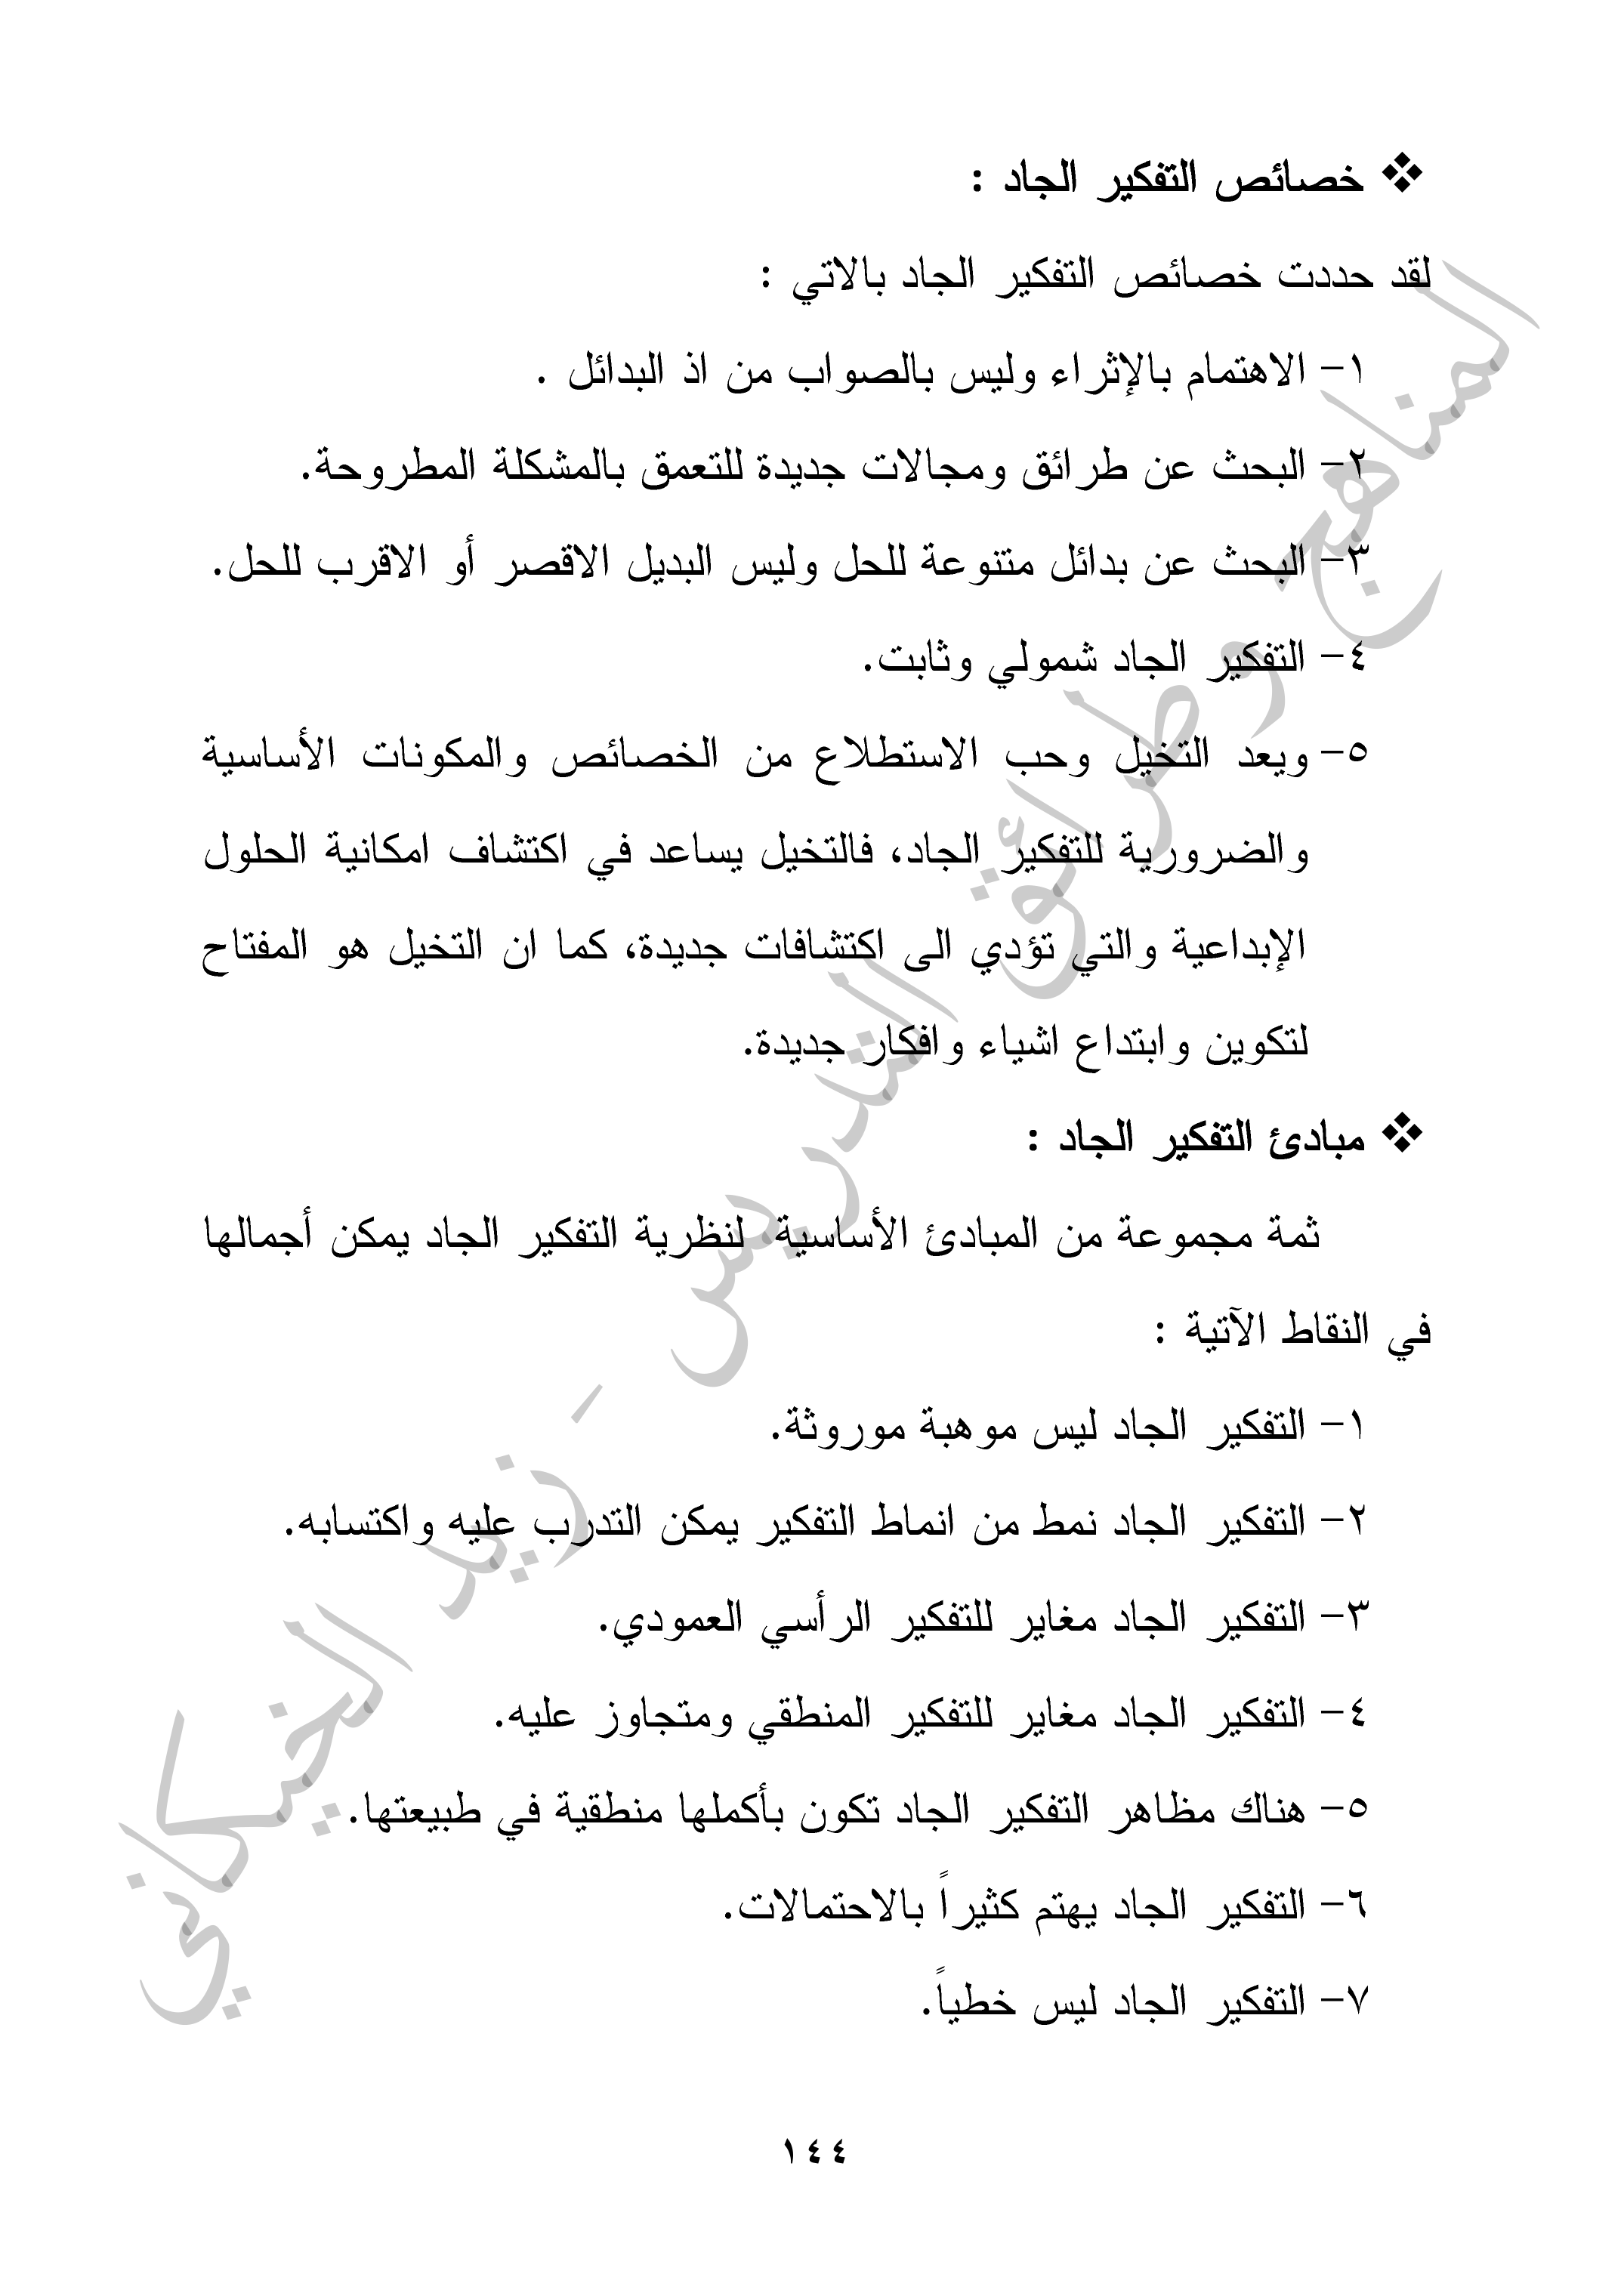 ❖ خصائص التفكير الجاد :
لقد حددت خصائص التفكير الجاد بالاتي :
١- الاهتمام بالإثراء وليس بالصواب من اذ البدائل .
٢- البحث عن طرائق ومجالات جديدة للتعمق بالمشكلة المطروحة.
٣- البحث عن بدائل متنوعة للحل وليس البديل الاقصر أو الاقرب للحل.
٤- التفكير الجاد شمولي وثابت.
٥- ويعد التخيل وحب الاستطلاع من الخصائص والمكونات الأساسية
والضرورية للتفكير الجاد، فالتخيل يساعد في اكتشاف امكانية الحلول
الإبداعية والتي تؤدي الى اكتشافات جديدة، كما ان التخيل هو المفتاح
لتكوين وابتداع اشياء وافكار جديدة.
❖ مبادئ التفكير الجاد :
ثمة مجموعة من المبادئ الأساسية لنظرية التفكير الجاد يمكن أجمالها
في النقاط الآتية :
١- التفكير الجاد ليس موهبة موروثة.
٢- التفكير الجاد نمط من انماط التفكير يمكن التدرب عليه واكتسابه.
٣- التفكير الجاد مغاير للتفكير الرأسي العمودي.
٤- التفكير الجاد مغاير للتفكير المنطقي ومتجاوز عليه.
٥- هناك مظاهر التفكير الجاد تكون بأكملها منطقية في طبيعتها.
٦- التفكير الجاد يهتم كثيراً بالاحتمالات.
٧- التفكير الجاد ليس خطياً.
١٤٤
المناهج وطرائق التدريس - زيد الخيكاني